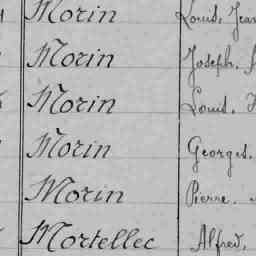 Morin Louis, Jean
Morin Joseph,
Morin Louis,
Morin Georges,
Morin Pierre,
Mortellec Alfred,